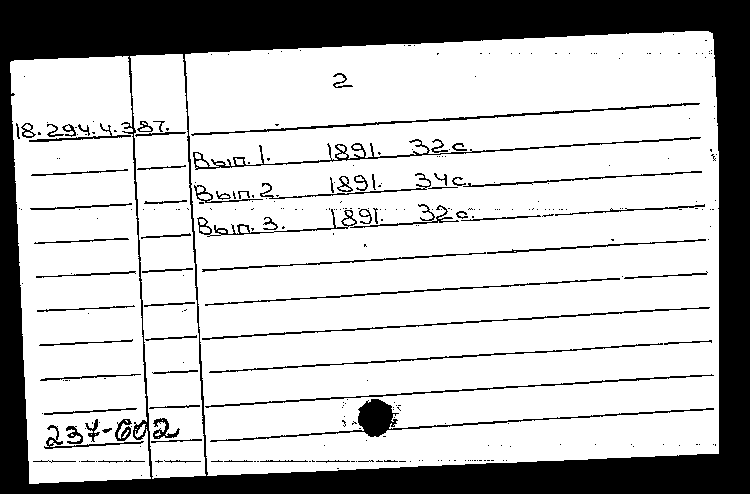 2
18.294.4.387.
Вып. 1. 1891. 32 с.
Вып. 2. 1891. 34 с.
Вып. 3. 1891. 32 с.
237-602